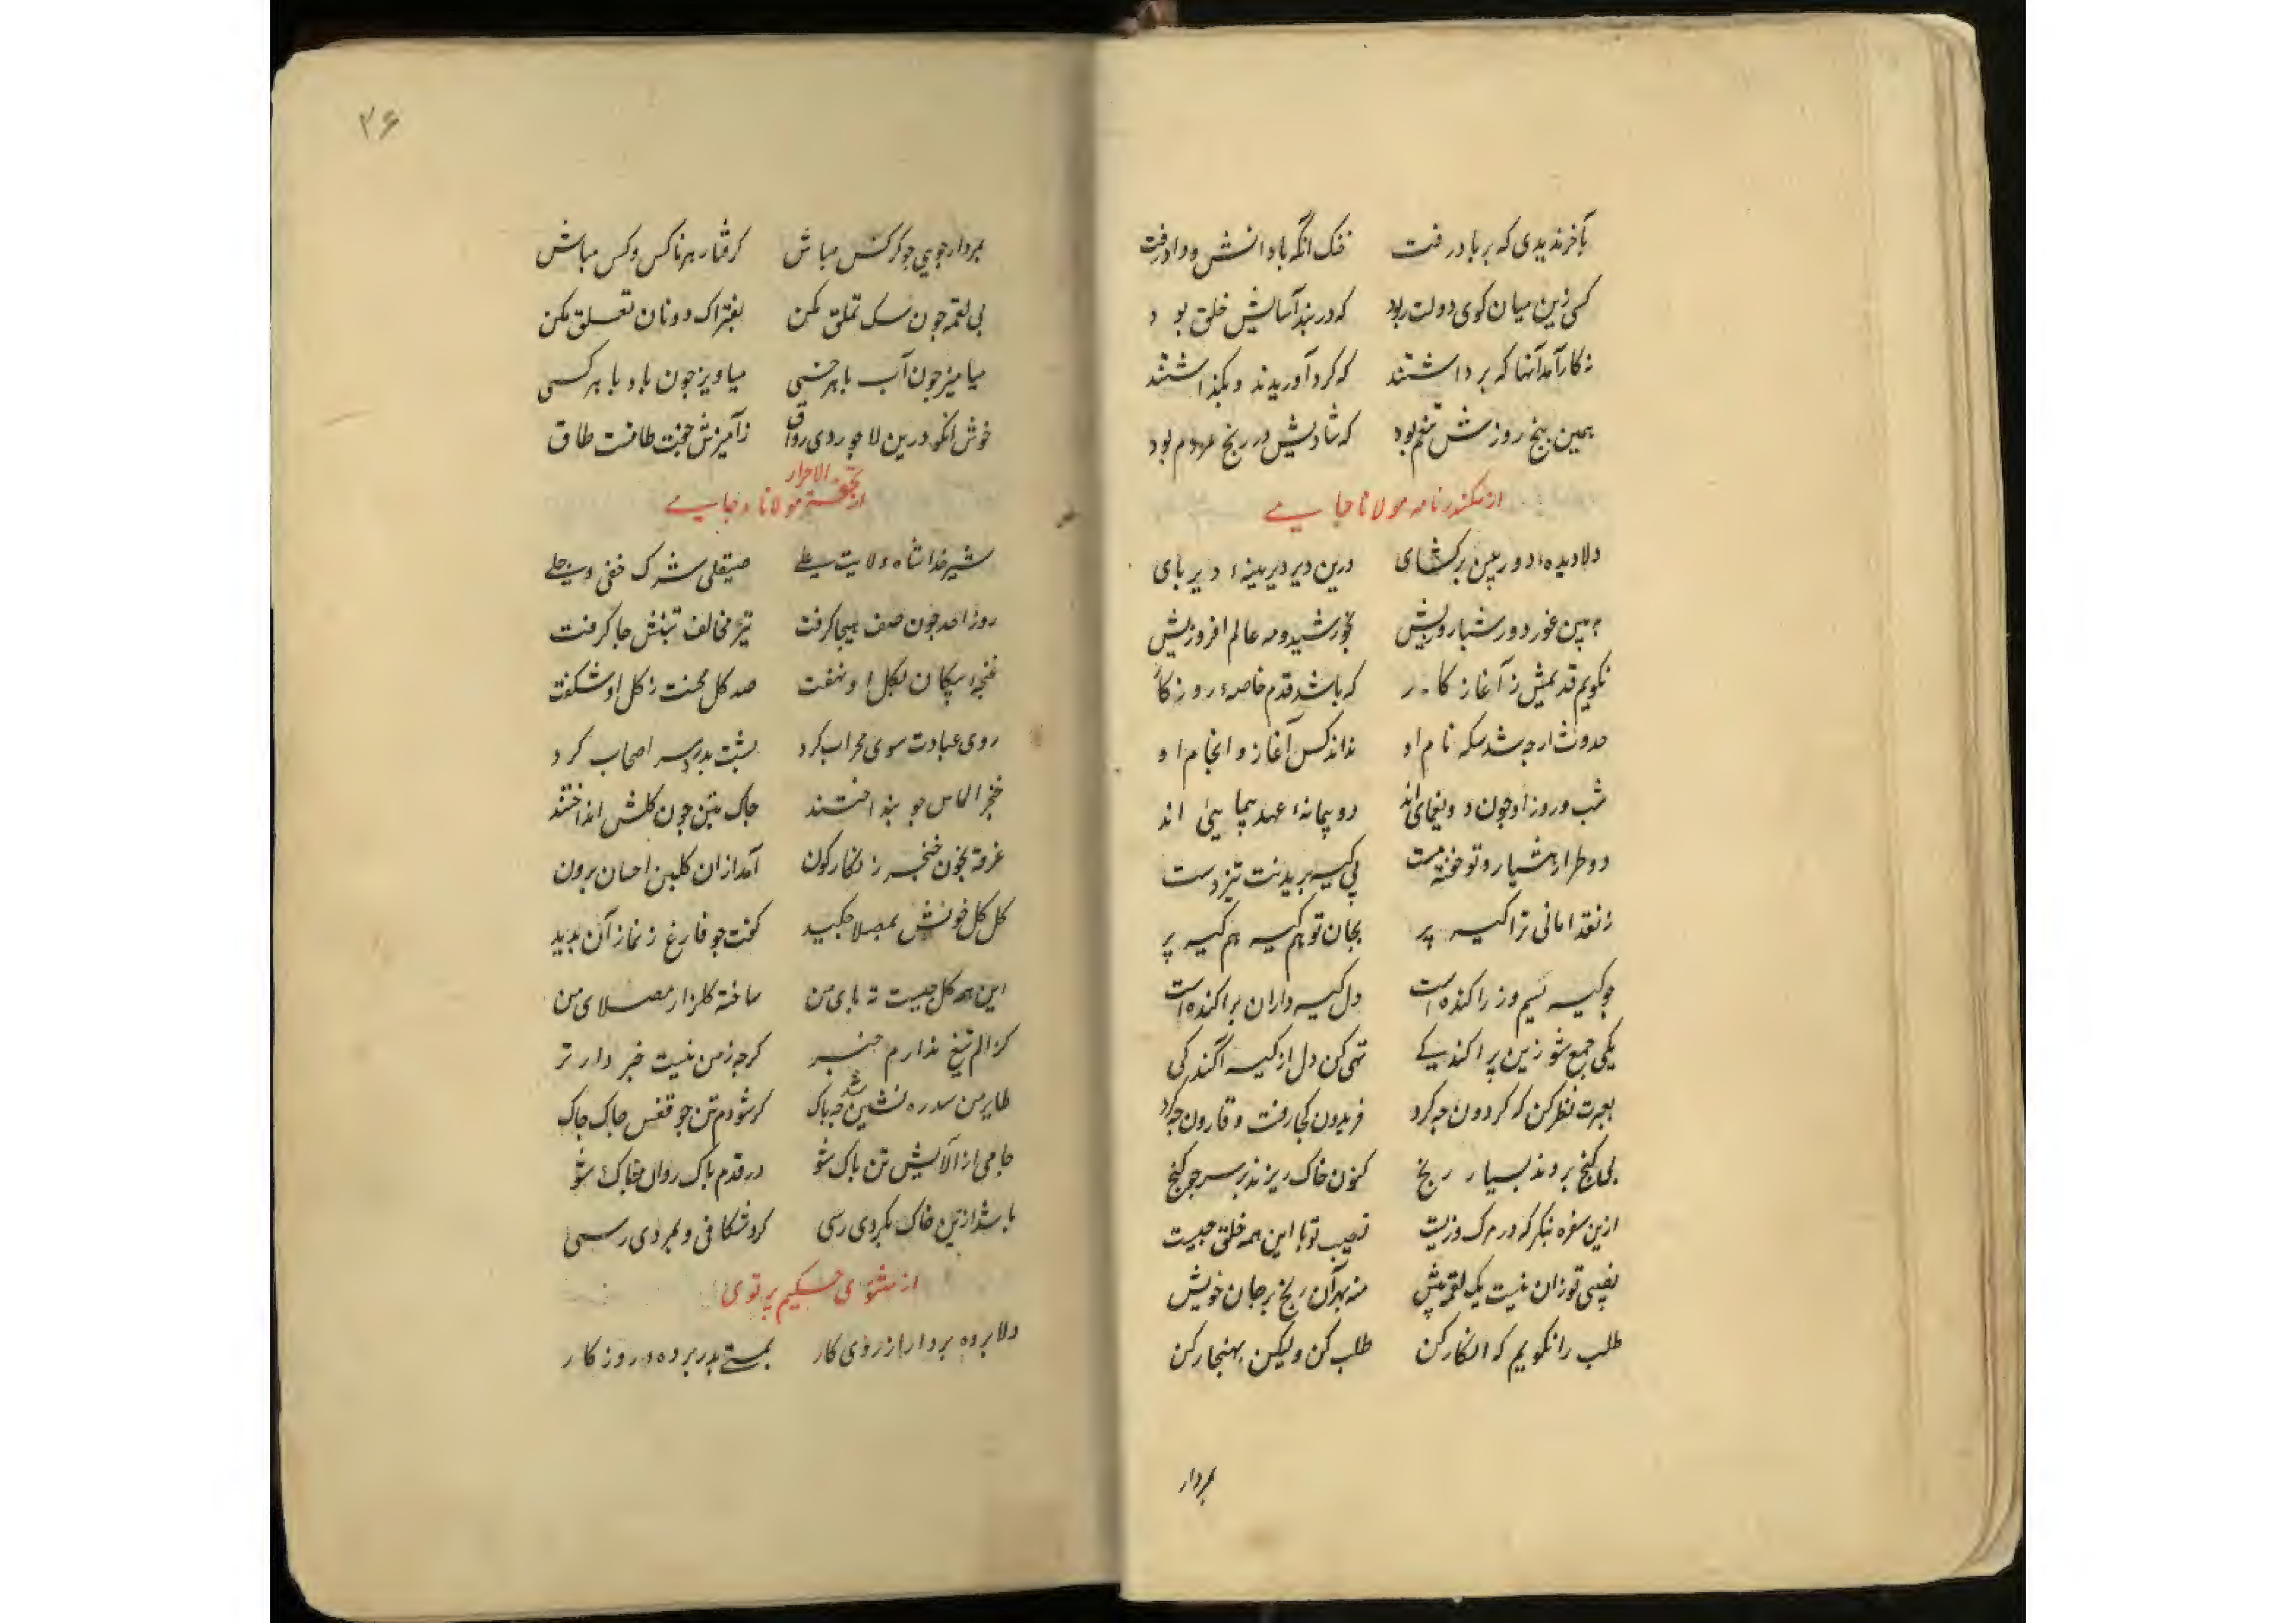 بآخر ندیدی که بر باد رفت خنک آنکه با دانش و داد رفت
کسی زین میان کوی دولت ربود که در بند آسایش خلق بود
نه کار آمد آنها که برداشتند که کرد آوریدند و بکذاشتند
همین پنج روزش تنعم بود که شادیش در رنج مردم بود
از سکندرنامه مولانا جامی
دلا دیده دوربین برکشای درین دیر دیرینه دیرپای
به بین غور دور شبان روزیش بخورشید و مه عالم افروزیش
نکویم قدیمش ز آغاز کار که باشد قدم خاصه روزکار
حدوث ارچه شد سکه نام او نداند کس آغاز و انجام او
شب و روز او چون دو یغمایی اند دو پیمانه عهد پیمایی اند
دو طرار هشیار و تو خفته مست پی کیسه بریدنت تیزدست
ز نقد امانی ترا کیسه پر بجان تو هم کیسه هم کیسه بر
چو کیسه بسیم و زر اکنده است دل کیسه داران پراکنده است
یکی جمع شو زین پراکندکی تهی کن دل از کیسه آکندکی
بعبرت نظر کن که کردون چه کرد فریدون کجا رفت و قارون چه کرد
پی کنج بردند بسیار رنج کنون خاک ریزند بر سر چو کنج
ازین سفره بنکر که در مرک و زیست نصیب تو با این همه خلق چیست
نصیبی تو زان نیست یک لقمه بیش منه بهر آن رنج بر جان خویش
طلب را نکویم که انکار کن طلب کن ولیکن بهنجار کن
بمردار
۳۶
بمردار جویی جو کرکس مباش کرفتار هر ناکس و کس مباش
پی لقمه چون سک تملق مکن بفتراک دونان تعلق مکن
میامیز چون آب با هر خسی میاویز چون باد با هر کسی
خوش انکو درین لاجوردی رواق ز آمیزش جفت طاقست طاق
از تحفة الاحرار مولانا جامی
شیر خدا شاه ولایت علی صیقلی شرک خفی و جلی
روز احد چون صف هیجا کرفت تیر مخالف بتنش جا کرفت
غنچه پیکان بکل او نهفت صد کل محنت ز کل او شکفت
روی عبادت سوی محراب کرد پشت بدرد سر اصحاب کرد
خنجر الماس چو بنداختند چاک بتن چون کلش انداختند
غرقه بخون خنجر زنکارکون آمد ازان کلبن احسان برون
کل کل خونش بمصلا چکید کفت چو فارغ ز نماز آن بدید
این همه کل چیست ته پای من ساخته کلزار مصلای من
کز الم تیغ ندارم خبر کرچه ز من نیست خبر دارتر
طایر من سدره نشین شد چه باک کر شودم تن چو قفس چاک چاک
جامی از آلایش تن پاک شو در قدم پاک روان خاک شو
باشد ازین خاک بکردی رسی کرد شکافی و بمردی رسی
از مثنوی حکیم پرتوی
دلا پرده بردار از روی کار بمستی بدر پرده روزکار